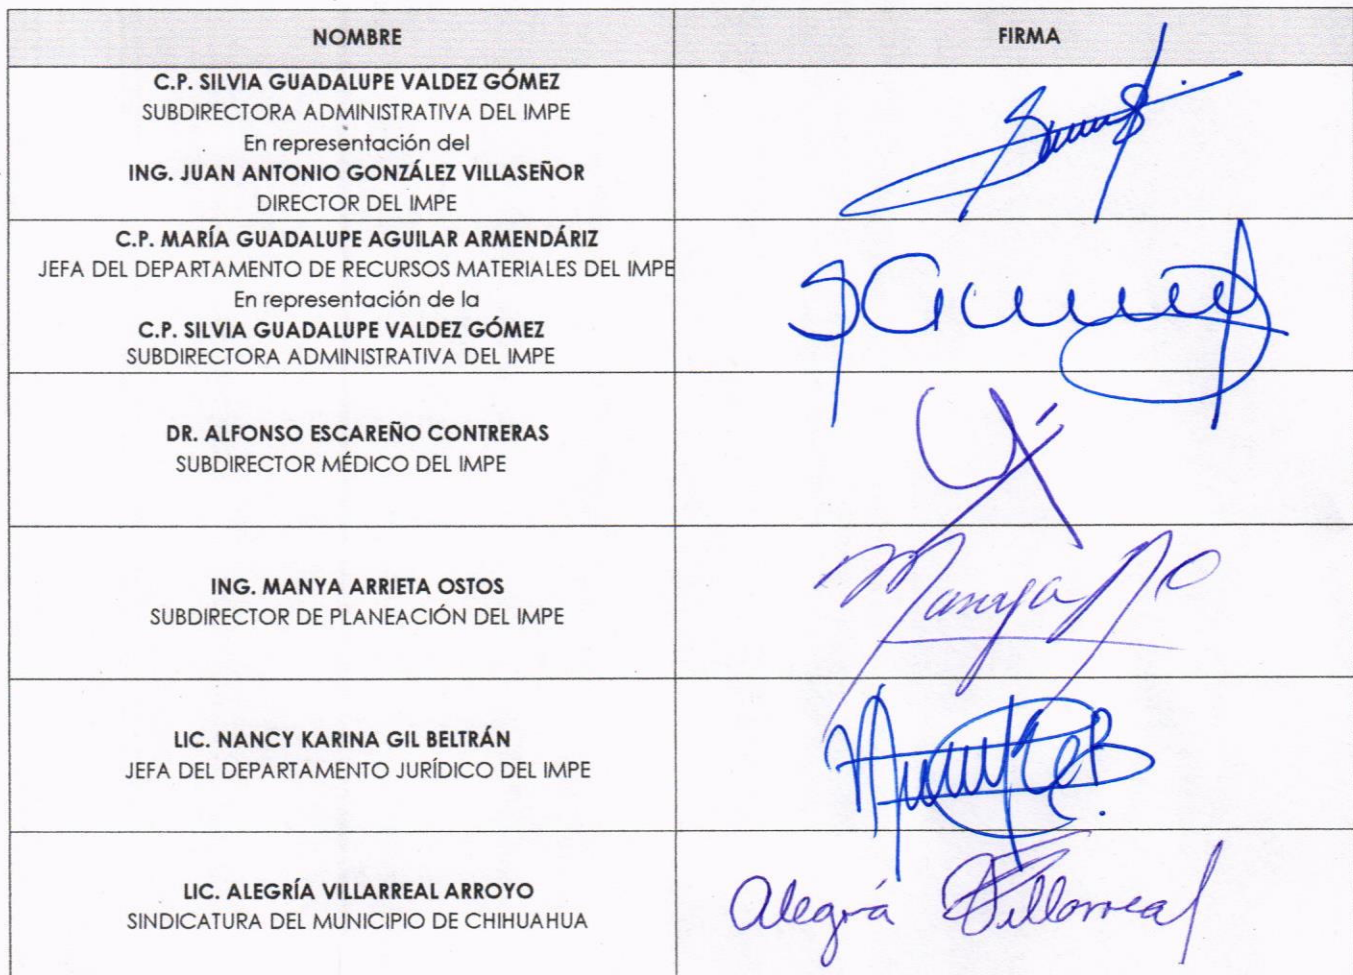 NOMBRE
FIRMA
C.P. SILVIA GUADALUPE VALDEZ GÓMEZ
SUBDIRECTORA ADMINISTRATIVA DEL IMPE
En representación del
ING. JUAN ANTONIO GONZÁLEZ VILLASEÑOR
DIRECTOR DEL IMPE
C.P. MARÍA GUADALUPE AGUILAR ARMENDÁRIZ
JEFA DEL DEPARTAMENTO DE RECURSOS MATERIALES DEL IMPE
En representación de la
C.P. SILVIA GUADALUPE VALDEZ GÓMEZ
SUBDIRECTORA ADMINISTRATIVA DEL IMPE
DR. ALFONSO ESCAREÑO CONTRERAS
SUBDIRECTOR MÉDICO DEL IMPE
ING. MANYA ARRIETA OSTOS
SUBDIRECTOR DE PLANEACIÓN DEL IMPE
Manya
LIC. NANCY KARINA GIL BELTRÁN
JEFA DEL DEPARTAMENTO JURÍDICO DEL IMPE
LIC. ALEGRÍA VILLARREAL ARROYO
SINDICATURA DEL MUNICIPIO DE CHIHUAHUA
Alegría Villarreal